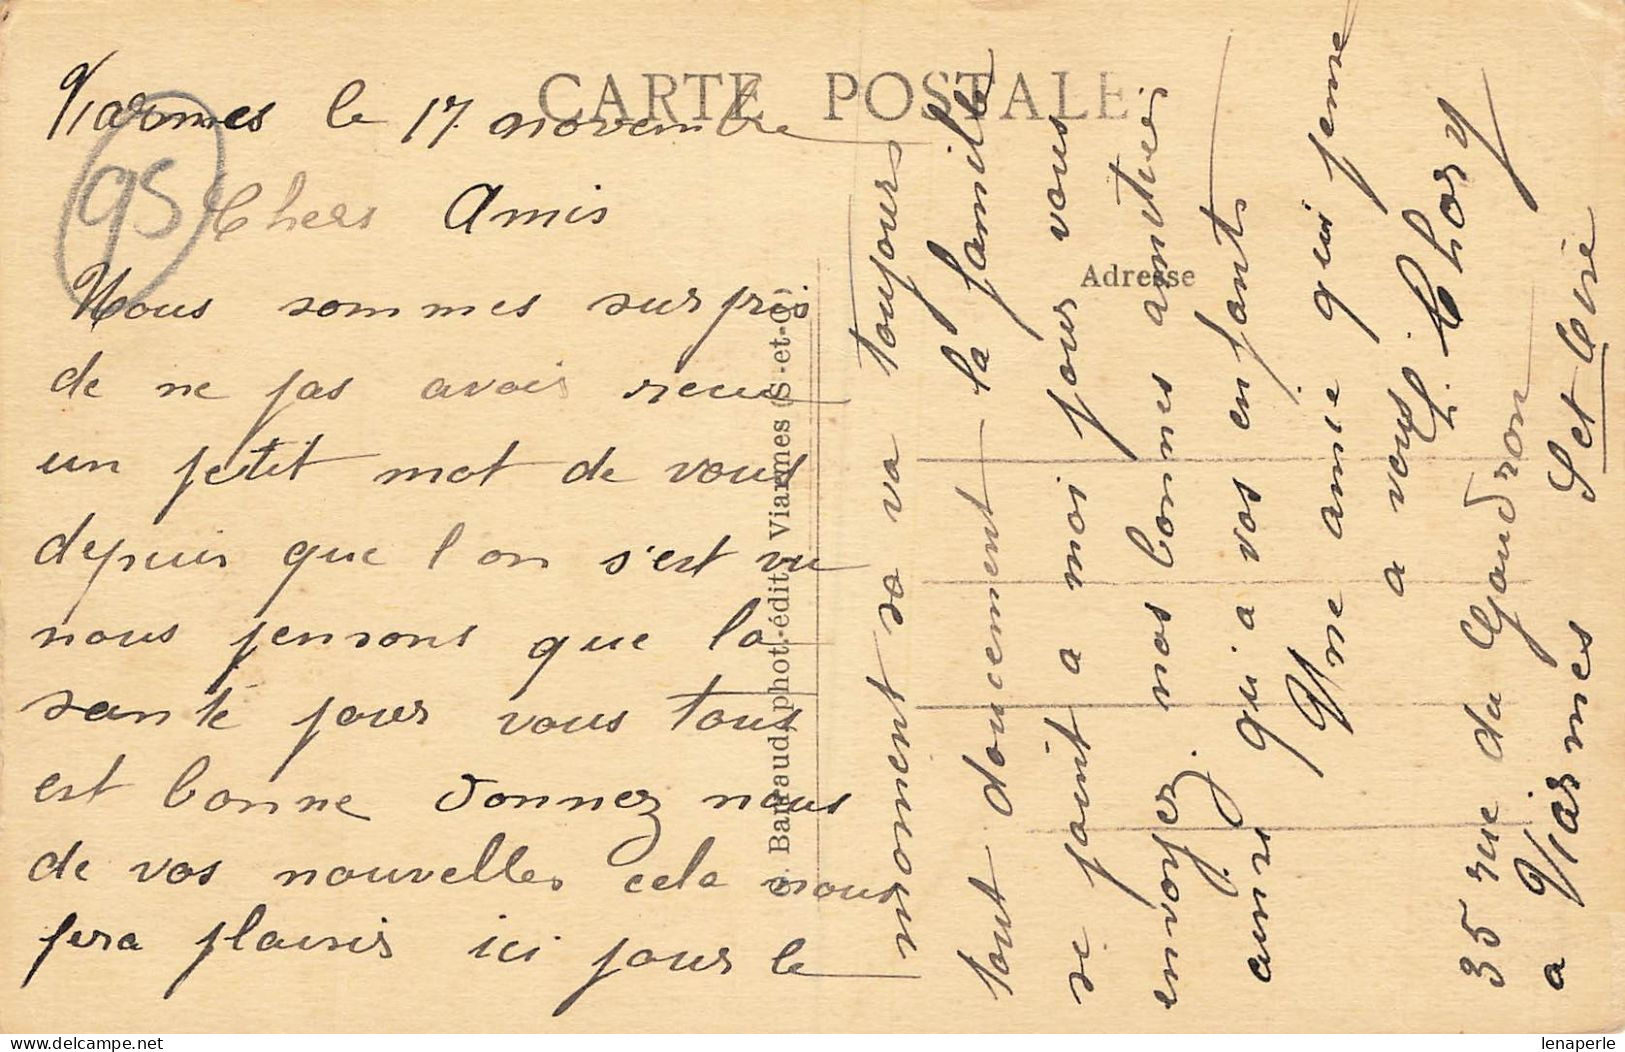 CARTE POSTALE
Viarmes le 17 novembre
95
Chers Amis
Nous sommes surpris
de ne pas avoir recu
un petit mot de vous
depuis que l on s'est vu
nous pensons que la
santé pour vous tous
est bonne donnez nous
de vos nouvelles cela nous
fera plaisir ici pour le
moment sa va toujours
tout doucement la famille
se joint a moi pour vous
envoyer nos bonnes amitiés
qui a vos enfants
ainsi
Une amie qui pense
a vous
35 rue du Gaudron
a Viarmes Set Oise
Adresse
Barnaud, phot.-édit. Viarmes (S-et-O)
lenaperle